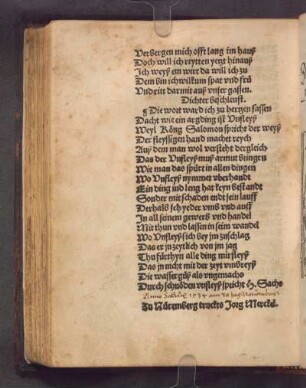 Verbergen mich offt lang im hauß
Doch will ich reytten yetzt hinauß
Ich weyß ein wirt da will ich zu
Dem bin ich wilkum spat und frü
Und reit darmit auß unser gassen.
Dichter Beschleust.
¶ Die wort ward ich zu hertzen fassen
Dacht wie ein argding ist Unfleyß
Weyl König Salomon spricht der weyß
Der fleyssigen hand machet reych
Auß dem man wol versteht dergleich
Das der Unfleyß muß armut bringen
Wie man das spürt in allen dingen
Wo Unfleyß nymmet uberhandt
Ein ding ind leng hat keyn bestandt
Sonder mit schaden endt sein lauff
Derhalb sich yeder umb und auff
In all seinem gewerb und handel
Mit thun und lassen in seim wandel
Wo Unfleyß sich bey jm zuschlag
Das er jn zeytlich von jm jag
Thu fürthyn alle ding mit fleyß
Das jn nicht mit der zeyt umbtreyb
Die wassergüß als ungemachs
Durch schnöden unfleyß spricht H. Sachs
Anno Salutis
Zu Nüremberg truckts Jorg Merckel.